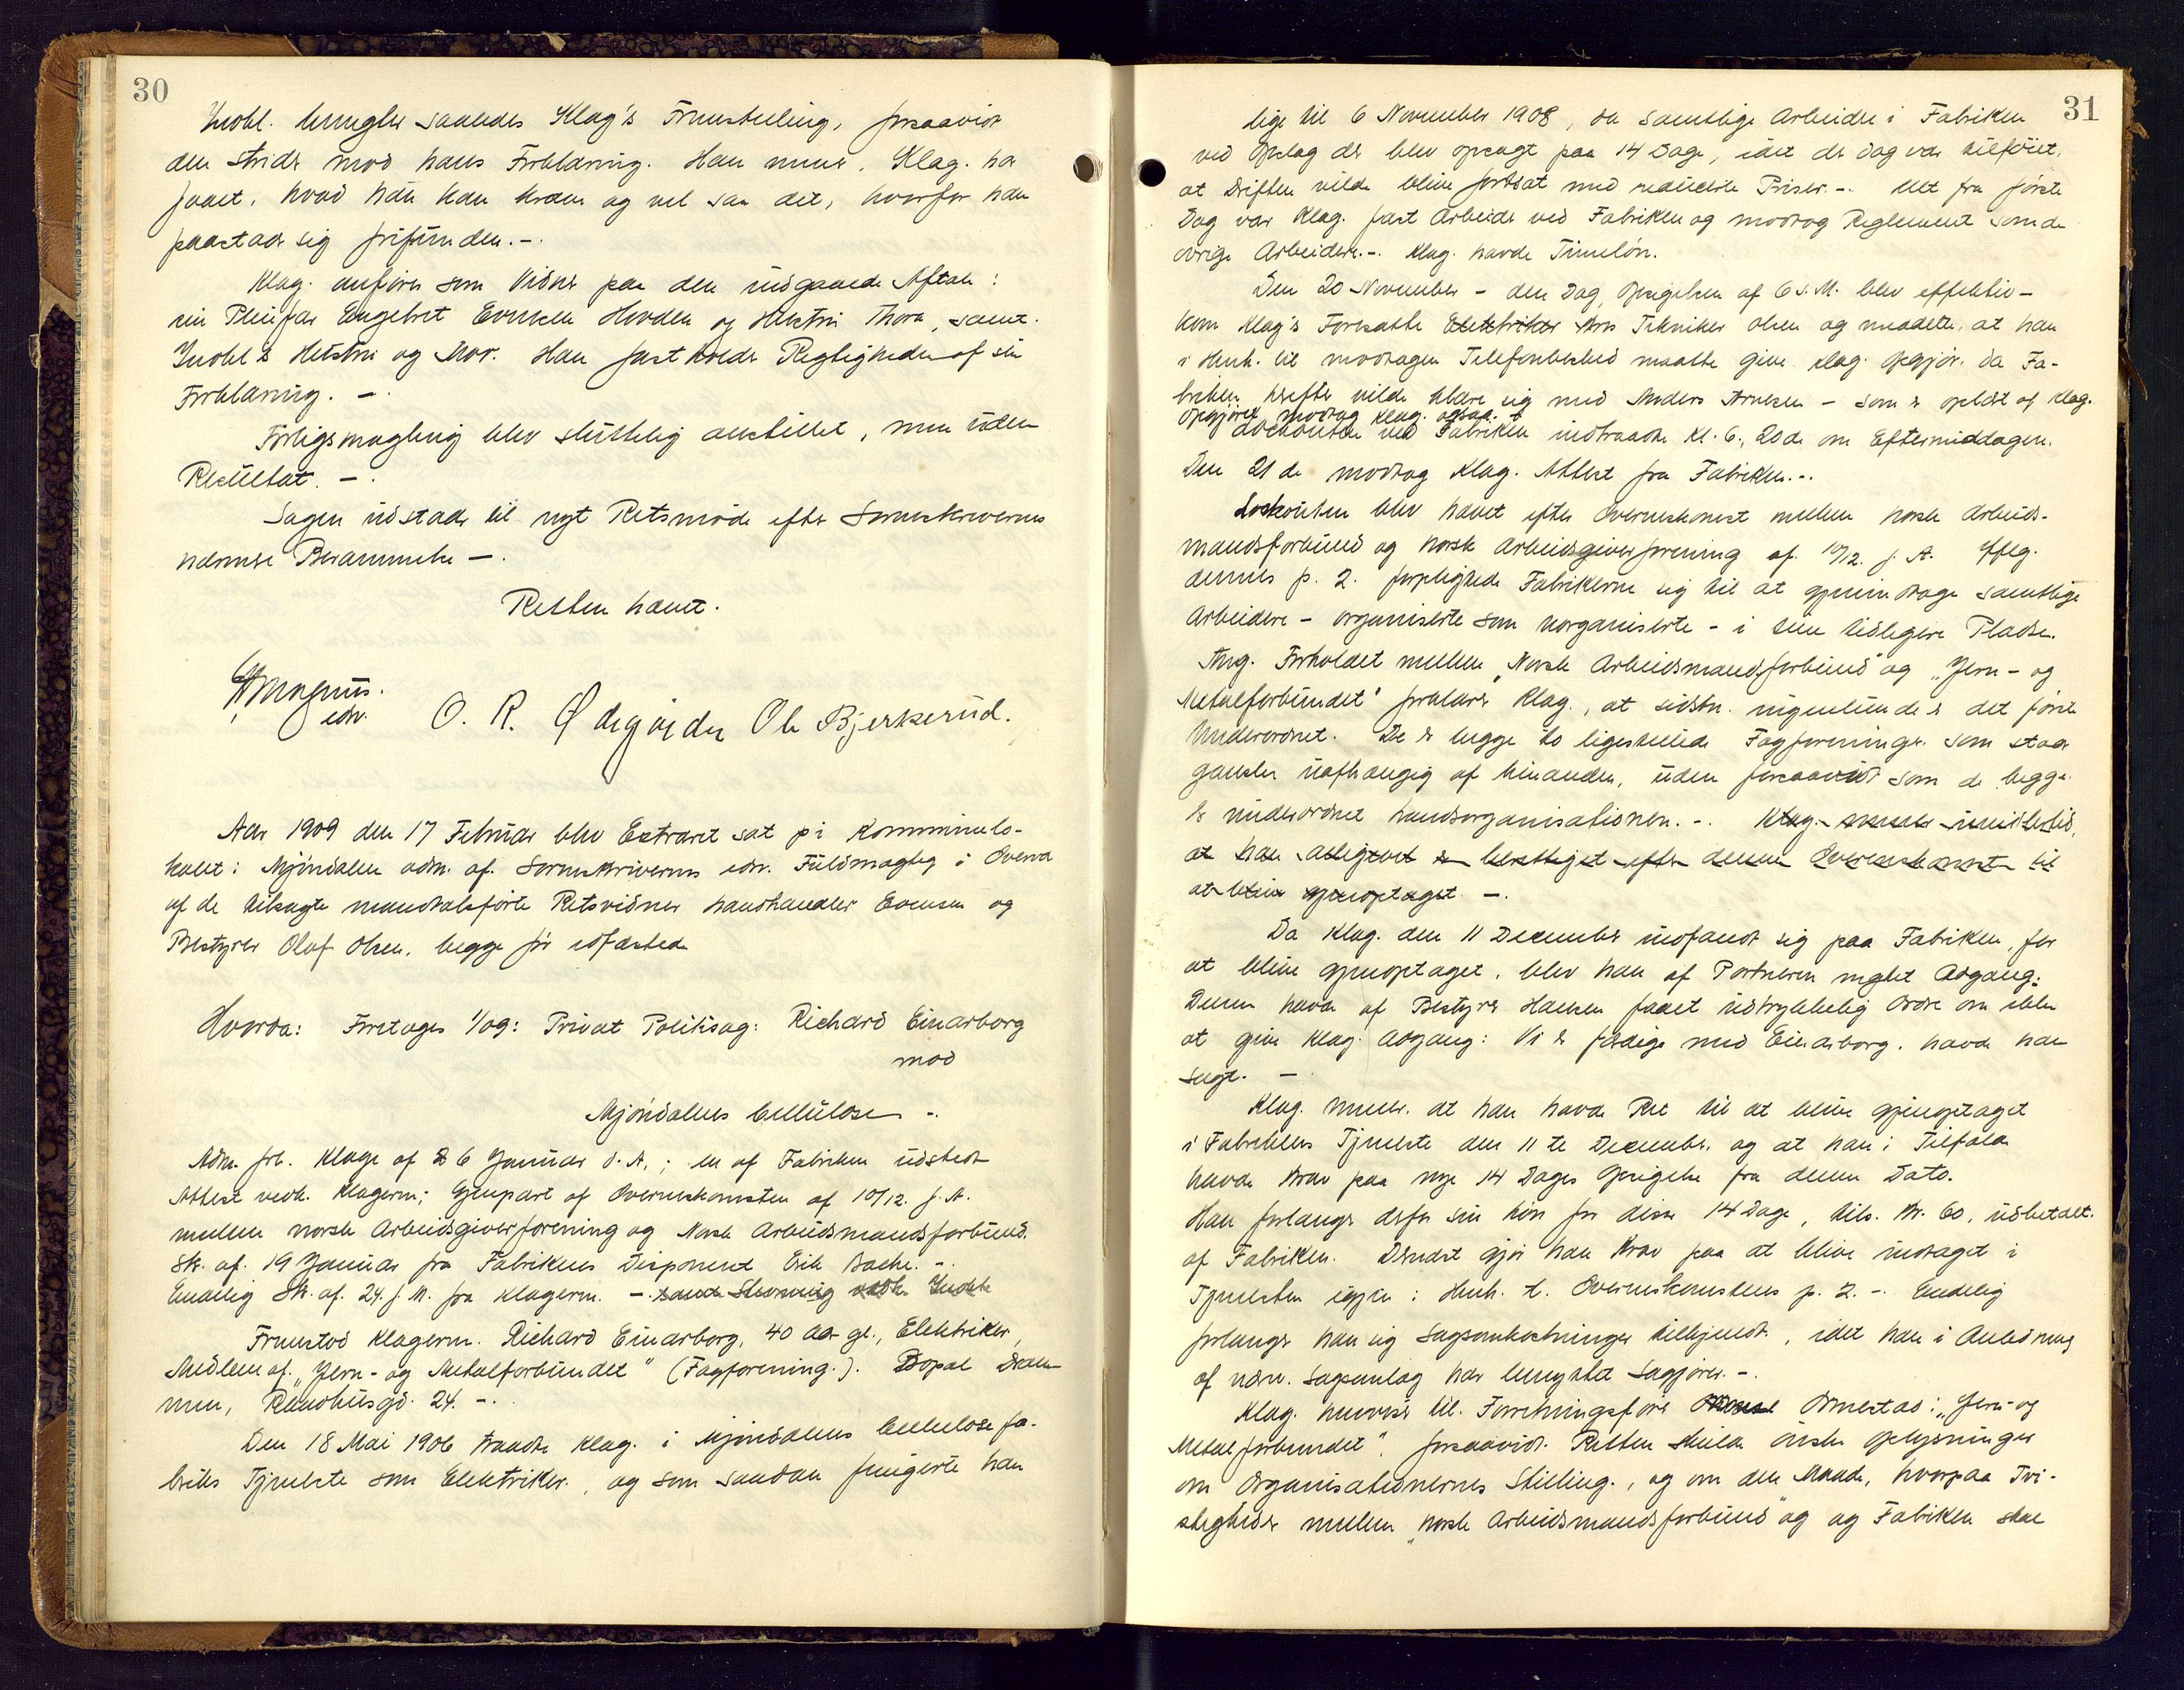 30
Indkl. benegter saaledes Klag's Fremstilling, forsaavidt
den strider mod hans Forklaring. Han mener, Klag. har
faaet, hvad han kan kræve og vel saa det, hvorfor han
paastaar sig frifunden.-.
Klag. anfører som Vidner paa den indgaaede Aftale:
sin Pleiefar Engebret Evensen Hovden og Hustru Thora, samt
Indkl's Hustru og Mor. Han fastholder Rigtigheden af sin
Forklaring. -.
Forligsmægling blev sluttelig anstillet, men uden
Resultat. -.
Sagen udstaar til nyt Retsmøde efter Sorenskriverens
nærmere Berammelse -.
Retten hævet.
Magnus.
edv. O. R. Ødegården Ole Bjerkerud.
Aar 1909 den 17 Februar blev Extraret sat på Kommunelo-
kalet i Mjøndalen adm. af Sorenskriverens edv. Fuldmægtig i Overvær
af de tilsagte mandtalsførte Retsvidner Landhandler Evensen og
Bestyrer Olaf Olsen, begge før edfæstede
Hvorda: Foretages 1/09: Privat Politisag: Richard Einarborg
mod
Mjøndalens Cellulose -.
Adm. frl. Klage af 26 Januar d. A.; en af Fabriken udstedt
Attest vedk. Klageren; Gjenpart af Overenskomsten af 10/12. f. A.
mellem norsk Arbeidsgiverforening og Norsk Arbeidsmandsforbund.
Skr. af. 19 Januar fra Fabrikens Disponent Erik Bache. -.
Endelig Skr. af. 24. f. M. fra Klageren. -. samt Stevning vedk. Indkl.
Fremstod Klageren. Richard Einarborg, 40 Aar gl., Elektriker,
Medlem af. "Jern- og Metalforbundet" (Fagforening.). Bopæl Dram-
men, Raadhusgd. 24. -.
Den 18 Mai 1906 traadte Klag. i Mjøndalens Cellulosefa-
briks Tjeneste som Elektriker, og som saadan fungerte han
31
lige til 6 November 1908, da samtlige Arbeidere i Fabriken
ved Opslag der blev opsagt paa 14 Dage, idet der dog var tilføiet,
at Driften vilde blive fortsat med reducerte Priser. -. Alt fra første
Dag var Klag. fast Arbeider ved Fabriken og modtog Reglement som de
øvrige Arbeidere. -. Klag. havde Timeløn.
Den 20 November - den Dag, Opsigelsen af 6 s. M. blev effektiv -
kom Klag's Foresatte Elektriker Hrr Tekniker Olsen og meddelte, at han
i Henh. til modtagen Telefonbesked maatte give Klag. Opgjør, da Fa-
briken herefter vilde klare sig med Anders Arnesen - som er oplært af Klag.
Opgjøret modtog Klag. ogsaa. †
Lockouten ved Fabriken indtraadte Kl. 6, 20de om Eftermiddagen.
Den 21 de modtog Klag. Attest fra Fabriken. -.
Lockouten blev hævet efter Overenskomst mellem norsk Arbeids-
mandsforbund og norsk Arbeidsgiverforening af. 10/12. f. A. Iflg.
dennes p. 2. forpligtede Fabrikerne sig til at gjenindtage samtlige
Arbeidere - organiserte som uorganiserte - i sine tidligere Pladse.
Ang. Forholdet mellem "Norsk Arbeidsmandsforbund" og "Jern- og
Metalforbundet" forklarer Klag., at sidstn. ingenlunde er det første
underordnet. De er begge to ligestillede Fagforeninger som staar
ganske uafhængig af hinanden, uden forsaavidt som de begge
er underordnet Landsorganisationen. -. Klag. mener imidlertid,
at han alligevel er berettiget efter denne Overenskomst til
at blive gjenoptaget -.
Da Klag. den 11 December indfandt sig paa Fabriken, for
at blive gjenoptaget, blev han af Portneren negtet Adgang:
Denne havde af Bestyrer Hansen faaet udtrykkelig Ordre om ikke
at give Klag. Adgang: Vi er færdige med Einarborg, havde han
sagt. -
Klag. mener, at han havde Ret til at blive gjenoptaget
i Fabrikens Tjeneste den 11 te December, og at han i Tilfælde
havde Krav paa nye 14 Dages Opsigelse fra denne Dato.
Han forlanger derfor sin Løn for disse 14 Dage, tils. Kr. 60, udbetalt.
af Fabriken. Dernæst gjør han Krav paa at blive indtaget i
Tjenesten igjen i Henh. t. Overenskomstens p. 2. -. Endelig
forlanger han sig Sagsomkostninger tilkjendt, idet han i Anledning
af nærv. Sagsanlæg har benyttet Sagfører. -.
Klag. henviser til. Forretningsfører Ormestad i "Jern- og
Metalforbundet", forsaavidt Retten skulde ønske Oplysninger
om Organisationernes Stilling., og om den Maade, hvorpaa Tvi-
stigheder mellem "norsk Arbeidsmandsforbund" og og Fabriken skal